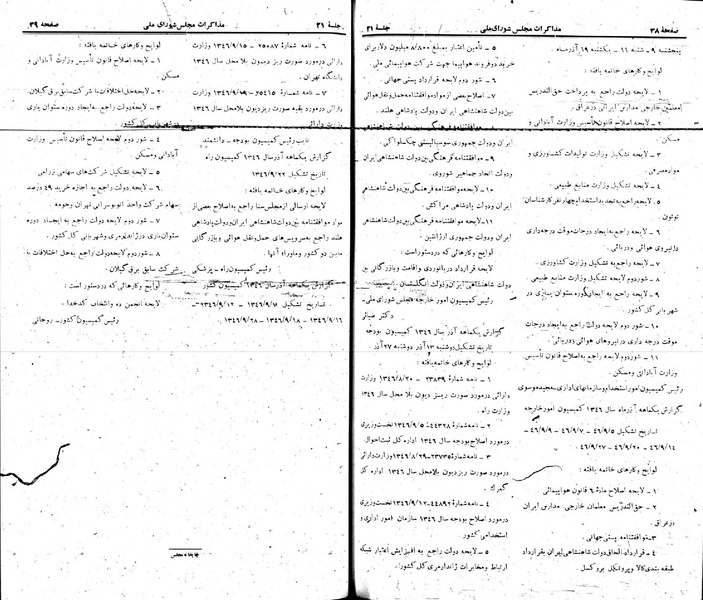 صفحه ۳۸
مذاکرات مجلس شورای ملی
جلسه ۲۱
پنجشنبه ۹ - شنبه ۱۱ - یکشنبه ۱۹ آذرماه
لوایح وکارهای خاتمه یافته :
۱ - لایحه دولت راجع به پرداخت حق‌التدریس
معلمین خارجی مدارس ایرانی درعراق .
۲ - لایحه اصلاح قانون تأسیس وزارت آبادانی و
مسکن .
۳ - لایحه تشکیل وزارت تولیدات کشاورزی و
مواد مصرفی .
۴ - لایحه تشکیل وزارت منابع طبیعی .
۵ - لایحه راجع به تجدید استخدام چهار نفر کارشناسان
توتون .
۶ - لایحه راجع به ایجاد درجات موقت درجه‌داری
در نیروی هوائی و دریائی .
۷ - لایحه راجع به تشکیل وزارت کشاورزی .
۸ - شور دوم لایحه تشکیل وزارت منابع طبیعی
۹ - لایحه راجع به ایجاد دوره ستوان یاری در
شهربانی کل کشور .
۱۰ - شور دوم لایحه دولت راجع به ایجاد درجات
موقت درجه داری در نیروهای هوائی و دریائی .
۱۱ - شور دوم لایحه راجع به اصلاح قانون تأسیس
وزارت آبادانی و مسکن .
رئیس کمیسیون امور استخدام و سازمانهای اداری - مجید موسوی
گزارش یکماهه آذر ماه سال ۱۳۴۶ کمیسیون امور خارجه
تاریخ تشکیل ۴۶/۹/۵ - ۴۶/۹/۷ - ۴۶/۹/۹
۴۶/۹/۱۴ - ۴۶/۹/۲۰ - ۴۶/۹/۲۷ .
لوایح وکارهای خاتمه یافته :
۱ - لایحه اصلاح ماده ۶ قانون هواپیمائی .
۲ - حق‌التدریس معلمان خارجی مدارس ایران
درعراق .
۳ - موافقتنامه پستی جهانی .
۴ - قرارداد الحاق دولت شاهنشاهی ایران بقرارداد
طبقه بندی کالا و پروتکل بروکسل .
۵ - تأمین اعتبار بمبلغ ۸/۸۰۰ میلیون دلار برای
خرید دو فروند هواپیما جهت شرکت هواپیمائی ملی .
۶ - شور دوم لایحه قرارداد پستی جهانی .
۷ - اصلاح بعضی از مواد موافقتنامه حمل و نقل هوائی
بین دولت شاهنشاهی ایران و دولت پادشاهی هلند .
۸ - موافقتنامه فرهنگی بین دولت شاهنشاهی
ایران و دولت جمهوری سوسیالیستی چکسلواکی .
۹ - موافقتنامه فرهنگی بین دولت شاهنشاهی ایران
و دولت اتحاد جماهیر شوروی .
۱۰ - لایحه موافقتنامه فرهنگی بین دولت شاهنشاهی
ایران و دولت پادشاهی مراکش .
۱۱ - لایحه موافقتنامه فرهنگی بین دولت شاهنشاهی
ایران و دولت جمهوری آرژانتین .
لوایح وکارهائی که در دستور است :
لایحه قرارداد دریانوردی و اقامت و بازرگانی بین
دولت شاهنشاهی ایران و دولت انگلستان .
رئیس کمیسیون امور خارجه مجلس شورای ملی -
دکتر ضیائی
گزارش یکماهه آذر سال ۱۳۴۶ کمیسیون بودجه
تاریخ تشکیل دوشنبه ۱۳ آذر دوشنبه ۲۷ آذر .
لوایح وکارهای خاتمه یافته :
۱ - نامه شماره ۲۳۸۳۹ - ۱۳۴۶/۸/۲۰ وزارت
دارائی در مورد صورت ریز دیون بلا محل سال ۱۳۴۶
وزارت راه .
۲ - نامه شماره ۴۴۳۲۸ - ۱۳۴۶/۹/۵ نخست وزیری
در مورد اصلاح بودجه سال ۱۳۴۶ اداره کل ثبت احوال .
۳ - نامه شماره ۲۳۷۳۵ - ۱۳۴۶/۸/۲۹ وزارت دارائی
در مورد صورت ریز دیون بلامحل سال ۱۳۴۶ اداره کل
گمرک .
۴ - نامه شماره ۴۴۸۹۲ - ۱۳۴۶/۹/۱۲ نخست وزیری
در مورد اصلاح بودجه سال ۱۳۴۶ سازمان امور اداری و
استخدامی کشور .
۵ - لایحه دولت راجع به افزایش اعتبار شبکه
ارتباط و مخابرات ژاندارمری کل کشور .
جلسه ۲۱
مذاکرات مجلس شورای ملی
صفحه ۳۹
۶ - نامه شماره ۲۵۰۸۷ - ۱۳۴۶/۹/۱۵ وزارت
دارائی در مورد صورت ریز دیون بلا محل سال ۱۳۴۶
دانشگاه تهران .
۷ - نامه شماره ۲۵۴۱۵ - ۱۳۴۶/۹/۱۹ وزارت
دارائی در مورد بقیه صورت ریز دیون بلامحل سال ۱۳۴۶
وزارت دارائی .
نایب رئیس کمیسیون بودجه - دانشمند
گزارش یکماهه آذر سال ۱۳۴۶ کمیسیون راه
تاریخ تشکیل ۱۳۴۶/۹/۲۲
لوایح وکارهای خاتمه یافته :
لایحه ارسالی از مجلس سنا راجع به اصلاح بعضی از
مواد موافقتنامه دولت شاهنشاهی ایران و دولت پادشاهی
هلند راجع به سرویس‌های حمل و نقل هوائی و بازرگانی
مابین دو کشور و ماوراء آنها .
رئیس کمیسیون راه - پزشکی
گزارش یکماهه آذر سال ۱۳۴۶ کمیسیون کشور
تاریخ تشکیل ۱۳۴۶/۹/۸ - ۱۳۴۶/۹/۱۲ -
۱۳۴۶/۹/۱۶ - ۱۳۴۶/۹/۱۸ - ۱۳۴۶/۹/۲۸
لوایح وکارهای خاتمه یافته :
۱ - لایحه اصلاح قانون تأسیس وزارت آبادانی و
مسکن .
۲ - لایحه حل اختلافات با شرکت سابق برق گیلان .
۳ - لایحه دولت راجع به ایجاد دوره ستوان یاری
در شهربانی کل کشور .
۴ - شور دوم لایحه اصلاح قانون تأسیس وزارت
آبادانی و مسکن .
۵ - لایحه تشکیل شرکت‌های سهامی زراعی .
۶ - لایحه دولت راجع به اجازه خرید ۴۹ درصد
سهام شرکت واحد اتوبوسرانی تهران و حومه .
۷ - شور دوم لایحه دولت راجع به ایجاد دوره
ستوان یاری در ژاندارمری و شهربانی کل کشور .
۸ - شور دوم لایحه دولت راجع به حل اختلافات با
شرکت سابق برق گیلان .
لوایح وکارهائی که در دستور است :
لایحه انجمن ده و انتخاب کدخدا .
رئیس کمیسیون کشور - روحانی
چاپخانه مجلس